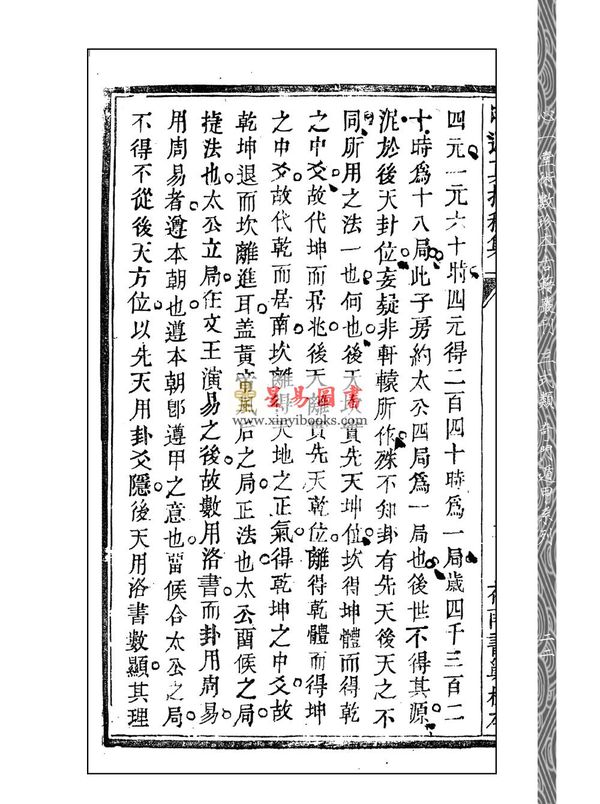 四元一元六十時四元得二百四十時爲一局歲四千三百二
十時爲十八局此子房約太公四局爲一局也後世不得其源
泥於後天卦位妄疑非軒轅所作殊不知卦有先天後天之不
同所用之法一也何也後天坎實先天坤位坎得坤體而得乾
之中爻故代坤而居北後天離實先天乾位離得乾體而得坤
之中爻故代乾而居南坎離得天地之正氣得乾坤之中爻故
乾坤退而坎離進耳蓋黃帝風后之局正法也太公留侯之局
捷法也太公立局在文王演易之後故數用洛書而卦用周易
用周易者遵本朝也遵本朝卽遵甲之意也留候合太公之局
不得不從後天方位以先天用卦爻隱後天用洛書數顯其理
星易圖書
www.xinyibooks.com